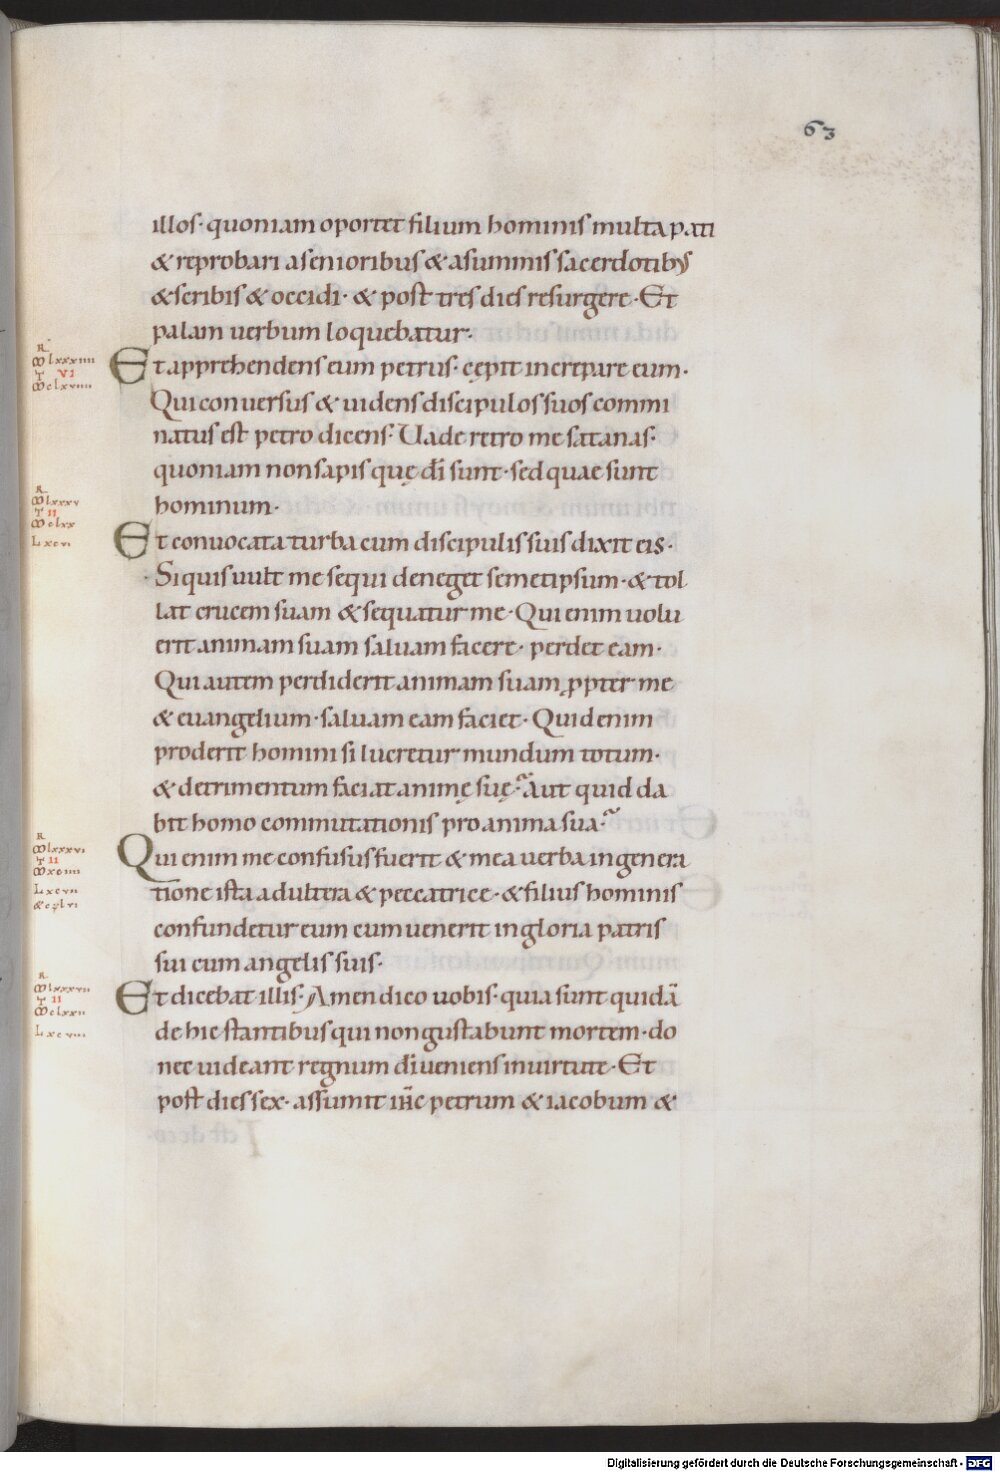 63
illos· quoniam oportet filium hominis multa pati
& reprobari a senioribus & a summis sacerdotibus
& scribis & occidi· & post tres dies resurgere· Et
palam uerbum loquebatur·
R
M lxxxiiii
T VI
M clxviiii
Et apprehendens eum petrus· cępit increpare eum·
Qui conuersus & uidens discipulos suos commi
natus est petro dicens· Uade retro me satanas·
quoniam non sapis quę dī sunt· sed quae sunt
hominum·
R
M lxxxv
T II
M clxx
L xcvi
Et conuocata turba cum discipulis suis dixit eis·
Siquis uult me sequi deneget semetipsum· & tol
lat crucem suam & sequatur me· Qui enim uolu
erit animam suam saluam facere· perdet eam·
Qui autem perdiderit animam suam ꝓpter me
& euangelium· saluam eam faciet· Quid enim
proderit homini si lucretur mundum totum·
& detrimentum faciat animę suę· Aut quid da
bit homo commutationis pro anima sua·
R
M lxxxvi
T II
M xciiii
L xcvii
Qui enim me confusus fuerit & mea uerba in genera
tione ista adultera & peccatrice· & filius hominis
confundetur eum cum uenerit in gloria patris
sui cum angelis suis·
R
M lxxxvii
T II
M clxxii
L xcviii
Et dicebat illis· Amen dico uobis· quia sunt quidā
de hic stantibus qui non gustabunt mortem· do
nec uideant regnum dī ueniens in uirtute· Et
post dies sex· assumit ih̄c petrum & iacobum &
Digitalisierung gefördert durch die Deutsche Forschungsgemeinschaft - DFG